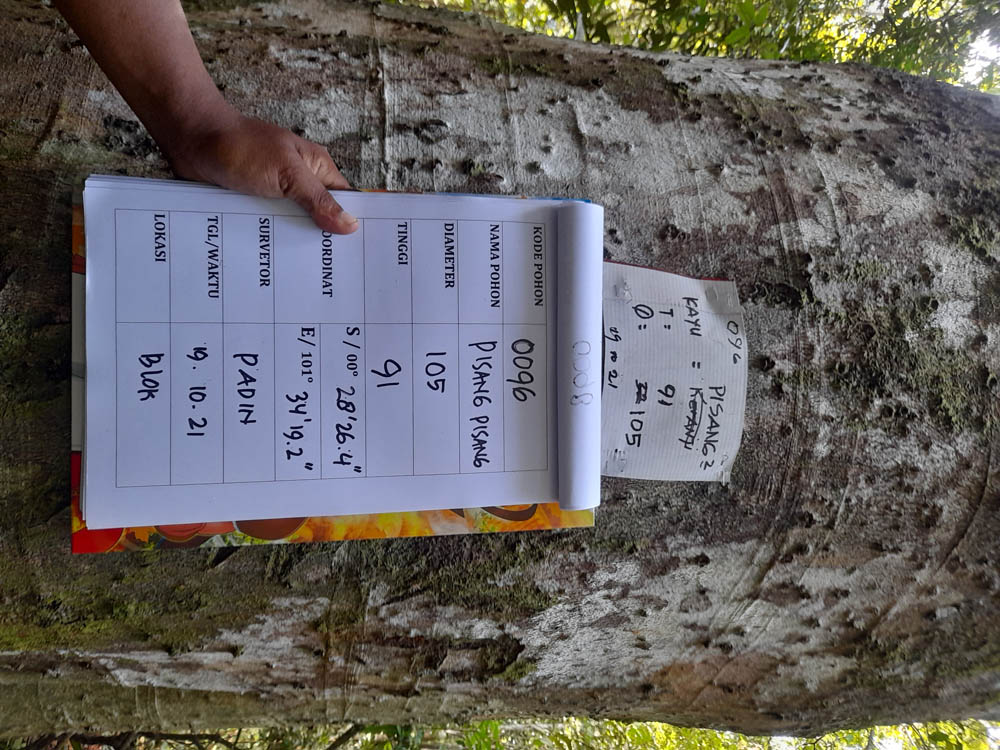 096
PISANG2
KAYU =
T: 91
Ø: 105
19 10 21
0098
KODE POHON 0096
NAMA POHON PISANG PISANG
DIAMETER 105
TINGGI 91
OORDINAT S / 00° 28'26.4"
E/ 101° 34'19.2"
SURVETOR PADIN
TGL/WAKTU 19. 10. 21
LOKASI BLOK